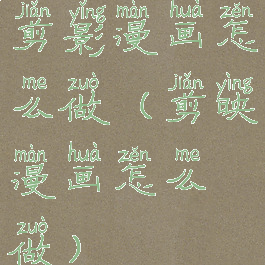 jiǎn yǐng màn huà zěn
剪影漫画怎
me zuò jiǎn yìng
么做（剪映
màn huà zěn me
漫画怎么
zuò
做）